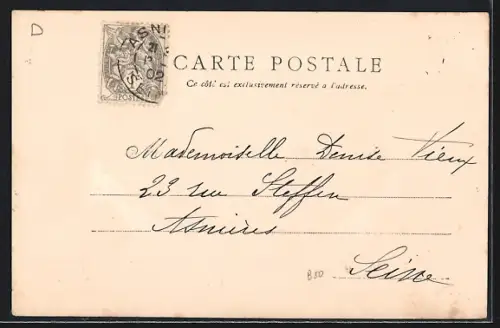 D
CARTE POSTALE
Ce côté est exclusivement réservé à l'adresse.
Mademoiselle Denise Vieux
23 rue Steffen
Asnières
Seine
B80